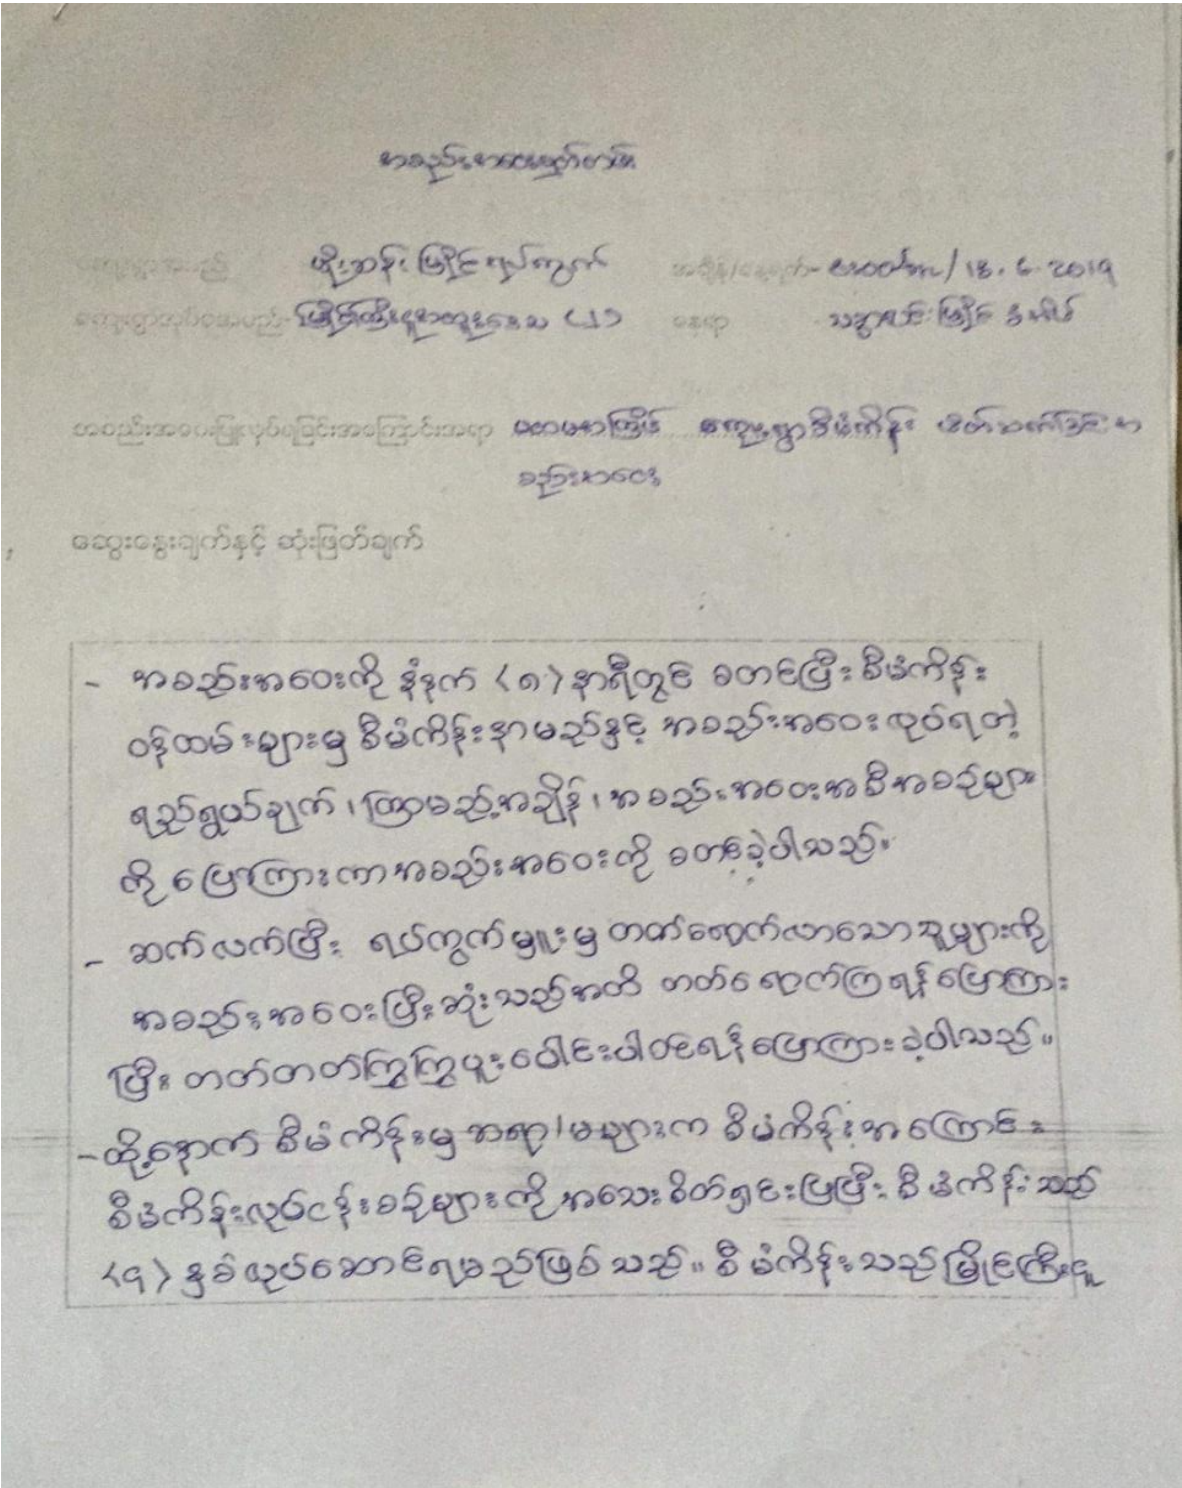 အစည်းအဝေးမှတ်တမ်း
ကျေးရွာအမည် မြိုင်ရပ်ကွက် အချိန်/နေ့ရက်- 18.6.2019
ကျေးရွာအုပ်စုအမည်- နေရာ
အစည်းအဝေးပြုလုပ်ရခြင်းအကြောင်းအရာ ပထမအကြိမ် ကျေးရွာစီမံကိန်း မိတ်ဆက်ခြင်း အ
စည်းအဝေး
ဆွေးနွေးချက်နှင့် ဆုံးဖြတ်ချက်
- အစည်းအဝေးကို နံနက် (၈) နာရီတွင် စတင်ပြီး စီမံကိန်း
ဝန်ထမ်းများမှ စီမံကိန်းနာမည်နှင့် အစည်းအဝေးလုပ်ရတဲ့
ရည်ရွယ်ချက်၊ ကြာမည့်အချိန်၊ အစည်းအဝေးအစီအစဉ်များ
ကို ပြောကြားကာ အစည်းအဝေးကို စတင်ခဲ့ပါသည်။
- ဆက်လက်ပြီး ရပ်ကွက်မှူးမှ တက်ရောက်လာသောသူများကို
အစည်းအဝေးပြီးဆုံးသည်အထိ တက်ရောက်ကြရန် ပြောကြား
ပြီး တက်တက်ကြွကြွပူးပေါင်းပါဝင်ရန် ပြောကြားခဲ့ပါသည်။
- ထို့နောက် စီမံကိန်းမှ ဆရာ/မများက စီမံကိန်းအကြောင်း
စီမံကိန်းလုပ်ငန်းစဉ်များကို အသေးစိတ်ရှင်းပြပြီး စီမံကိန်းသည်
(၄) နှစ် လုပ်ဆောင်ရမည်ဖြစ်သည်။ စီမံကိန်းသည် မြိုင်ကြီးငူ